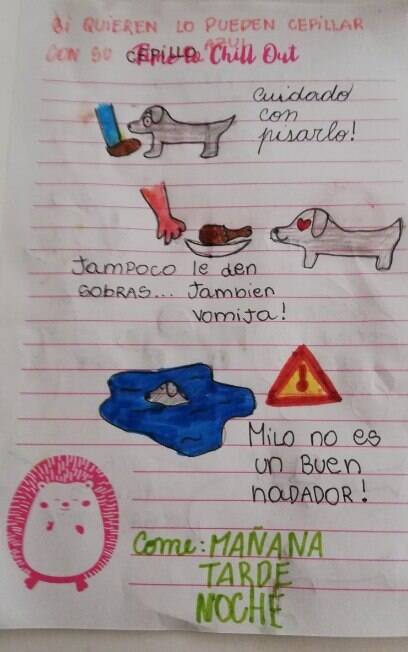 SI QUIEREN LO PUEDEN CEPILLAR
CON SU CEPILLO AZUL
Time to Chill Out
Cuidado
con
pisarlo!
TAMPOCO le den
SOBRAS... Tambien
vomita!
MILO no es
un Buen
naDADOR!
Come: MAÑANA
TARDE
NOCHE